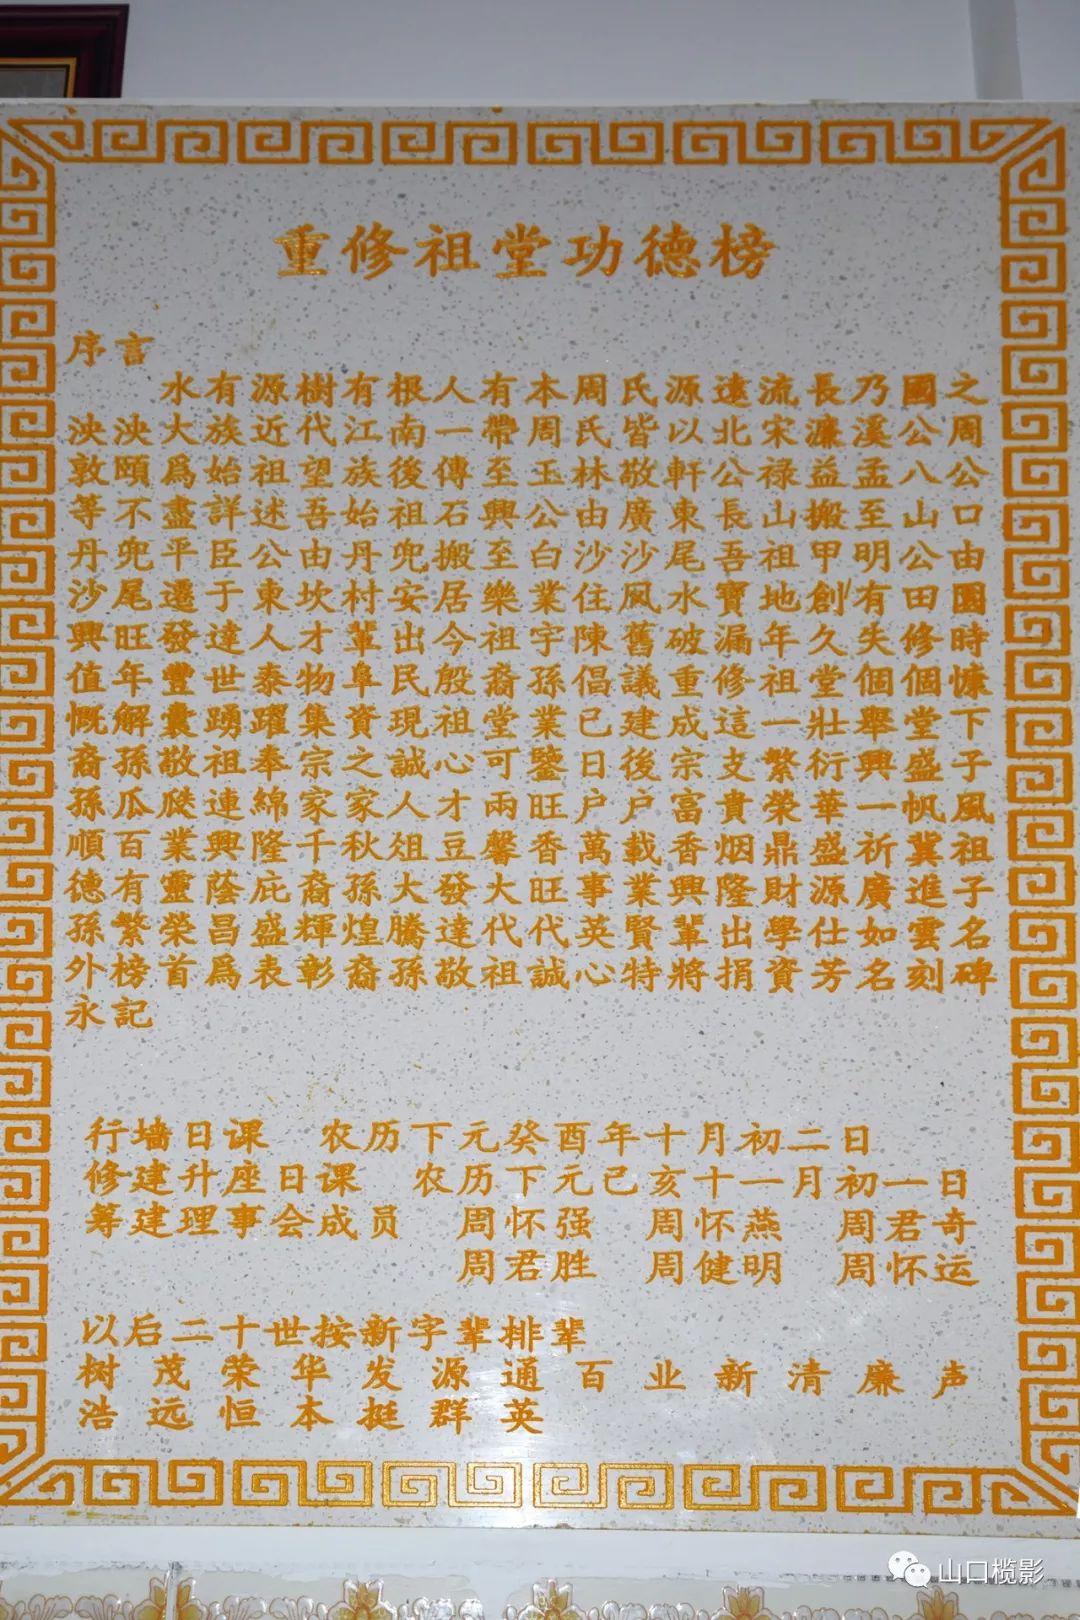 重修祖堂功德榜
序言
水有源樹有根人有本周氏源遠流長乃國之
泱泱大族近代江南一帶周氏皆以北宋濂溪公周
敦頤爲始祖望族後傳至玉林敬軒公禄益孟八公
等不盡詳述吾始祖石興公由廣東長山搬至山口
丹兜平臣公由丹兜搬至白沙沙尾吾祖甲明公由
沙尾遷于東坎村安居樂業住風水寶地創有田園
興旺發達人才輩出今祖宇陳舊破漏年久失修時
值年豐世泰物阜民殷裔孫倡議重修祖堂個個慷
慨解囊踴躍集資現祖堂業已建成這一壯舉堂下
裔孫敬祖奉宗之誠心可鑒日後宗支繁衍興盛子
孫瓜瓞連綿家家人才兩旺户户富貴榮華一帆風
順百業興隆千秋俎豆馨香萬載香烟鼎盛祈冀祖
德有靈蔭庇裔孫大發大旺事業興隆財源廣進子
孫繁榮昌盛輝煌騰達代代英賢輩出學仕如雲名
外榜首爲表彰裔孫敬祖誠心特將捐資芳名刻碑
永記
行墙日课 农历下元癸酉年十月初二日
修建升座日课 农历下元己亥十一月初一日
筹建理事会成员 周怀强 周怀燕 周君奇
周君胜 周健明 周怀运
以后二十世按新字辈排辈
树茂荣华发源通百业新清廉声
浩远恒本挺群英
山口榄影